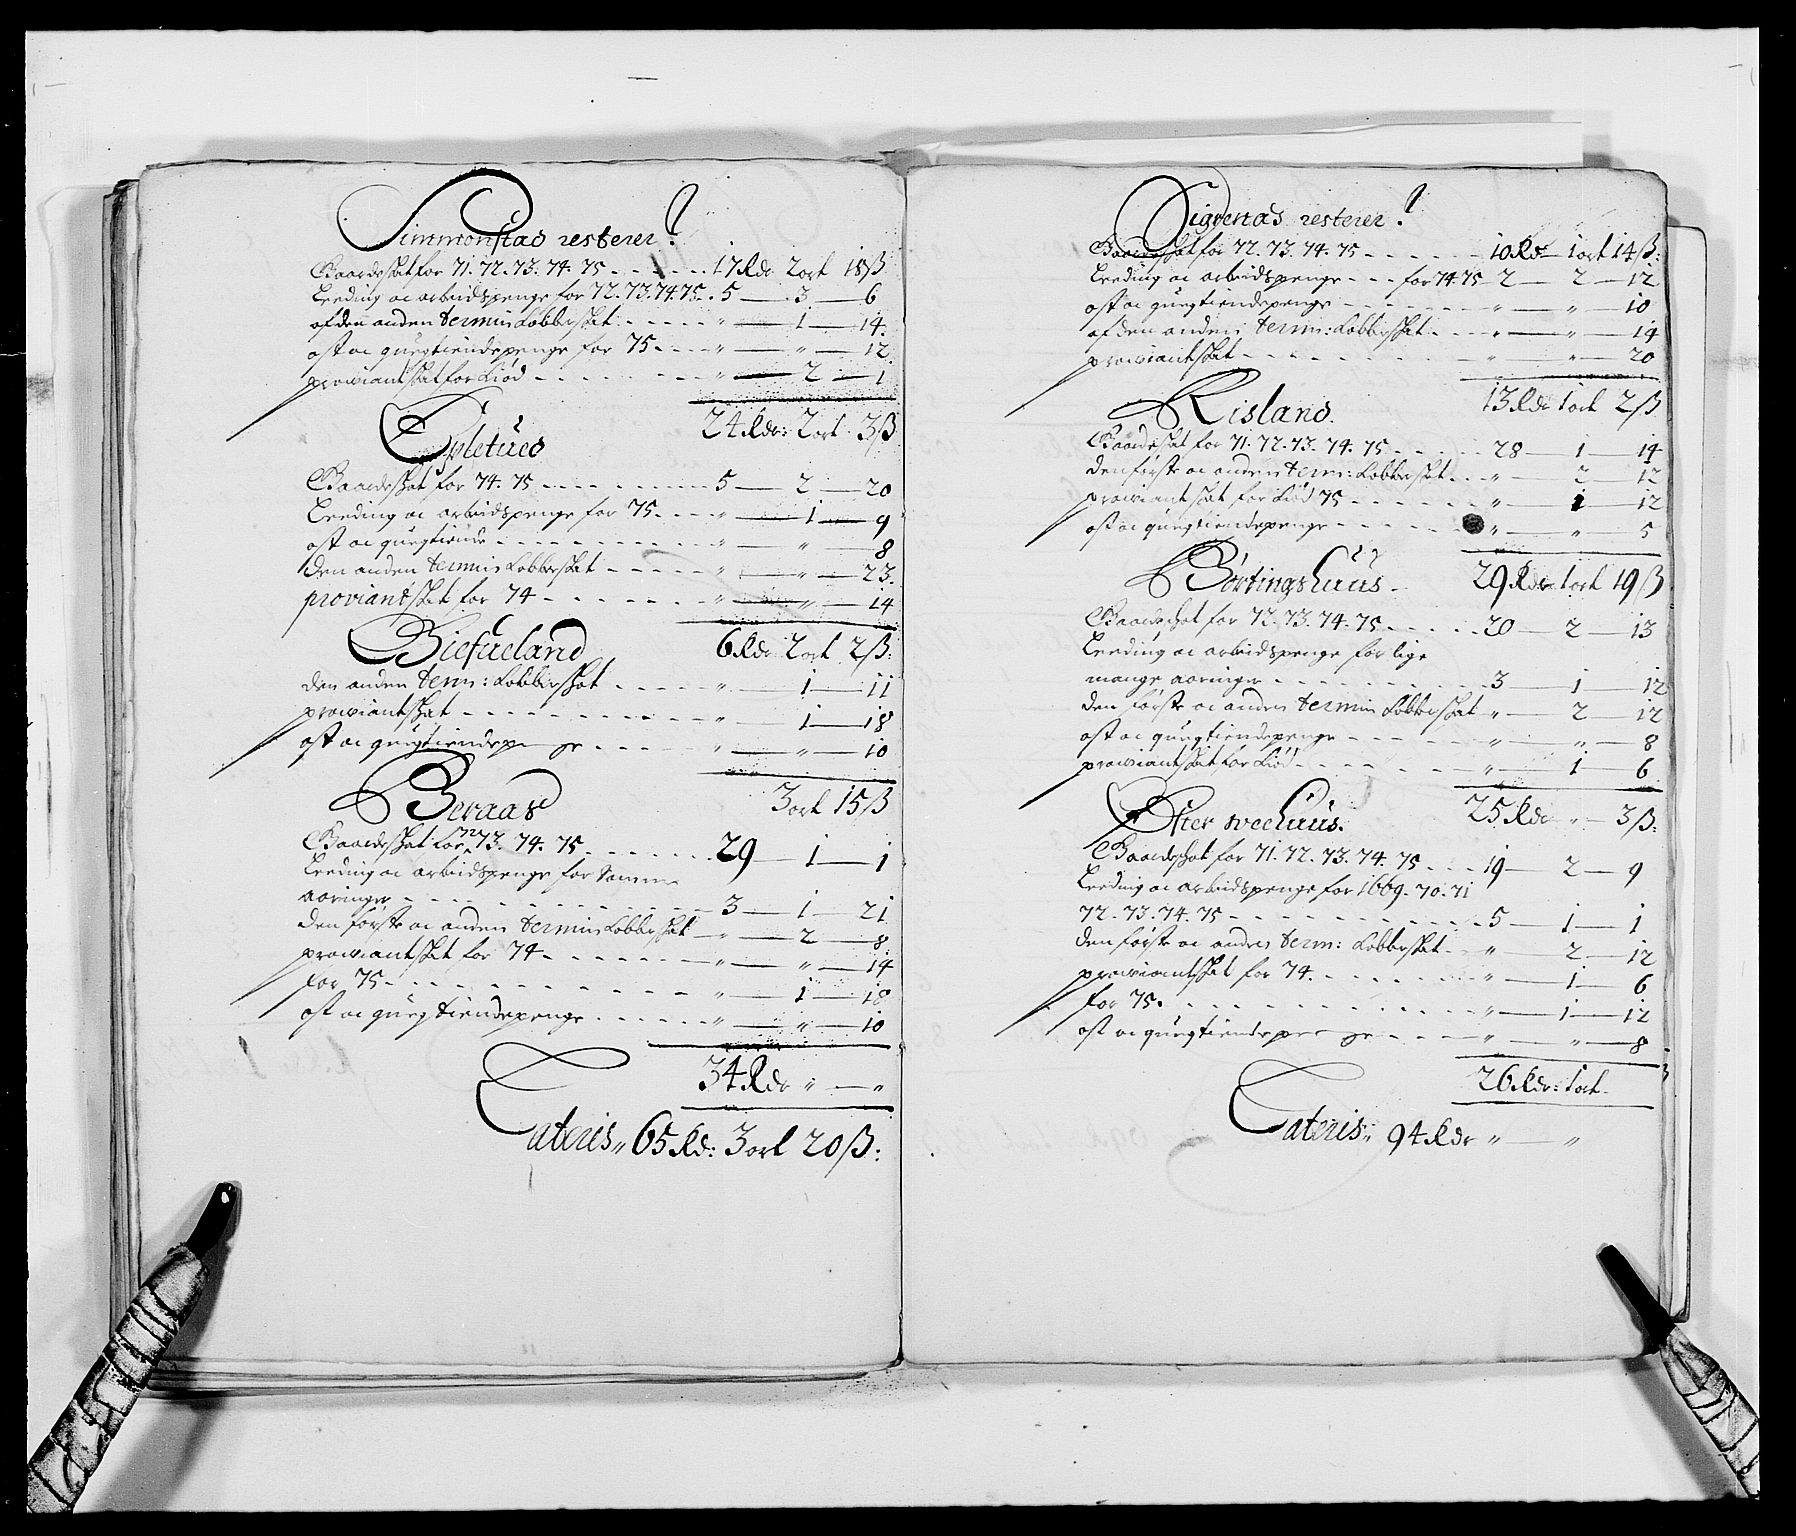 Simmonstad resterer
Gaardeskat for 71. 72. 73. 74. 75 - - - - - 17 Rdr 2 ort 18 ß
Leeding oc arbeidspenge for 72. 73. 74. 75. 5 — 3 — 6
af den anden termin Kobberskat - - - - „ — 1 — 14.
ost oc quegtiendepenge for 75 - - - „ — „ — 12
proviantskat for Kiød - - - - - - „ — 2 — 1
24 Rdr: 2 ort 3 ß
Epletued
Gaardeskat for 74. 75 - - - - - - 5 — 2 — 20
Leeding oc arbeidspenge for 75 - - - „ — 1 — 9
ost oc quegtiende - - - - - - „ — „ — 8
den anden termin Kobberskat - - - - „ — „ — 23.
proviantskat for 74 - - - - - „ — „ — 14
6 Rdr 2 ort 2 ß:
Biefueland
den anden term: Kobberskat - - - - „ — 1 — 11
prowiantskat - - - - - - „ — 1 — 18
ost oc quegtiendepenge - - - - „ — „ — 10
3 ort 15 ß
Beraas
Gaardeskat for 72 73. 74. 75 - - - - - 29 — 1 — 1
Leeding oc arbeidspenge for samme
aaringer - - - - - - - 3 — 1 — 21
den første oc anden termin Kobberskat - „ — 2 — 8
prowiantskat for 74 - - - - - „ — „ — 14
for 75 - - - - - - - „ — 1 — 18
ost oc quegtiendepenge - - - - „ — „ — 10
34 Rdr „ — „
Lateris „ 65 Rd: 3 ort 20 ß:
Sigvenas resterer
Gaardeskat for 72. 73. 74. 75 - - - - - 10 Rdr 1 ort 14 ß:
Leeding oc arbeidspenge - - - for 74. 75 - 2 — 2 — 12
ost oc quegtiendepenge - - - - - „ — „ — 10
af den anden term: Kobberskat - - „ — „ — 14
prowiantskat - - - - - - „ „ — 20
13 Rdr 1 ort 2 ß
Risland.
Gaardeskat for 71. 72. 73. 74. 75 - - - - - 28 — 1 — 14
den første oc anden term: Kobberskat - - „ — 2 — 12
prowiantskat for Kiød 75 - - - - - „ — 1 — 12
ost oc quegtiendepenge - - - - - „ — „ — 5
29 Rdr 1 ort 19 ß
Børtingshuus -
Gaardeskat for 72. 73. 74. 75 - - - - - 20 — 2 — 13
Leeding oc arbeidspenge for lige
mange aaringer - - - - - - 3 — 1 — 12
den første oc anden termin Kobberskat „ — 2 — 12
ost oc quegtiendepenge - - - - „ — „ — 8
prowiantskat for Kiød - - - - „ — 1 — 6
25 Rdr „ — 3 ß:
Øster weehuus.
Gaardeskat for 71. 72. 73. 74. 75 - - - 19 — 2 — 9
Leeding oc arbeidspenge for 1669. 70. 71
72. 73. 74. 75 - - - - - - - 5 — 1 — 1
den første oc anden term: Kobberskat - - „ — 2 — 12
prowiantskat for 74 - - - - - „ — 1 — 6
for 75. - - - - - - - „ — 1 — 12
ost oc quegtiendepenge - - - „ — „ — 8
26 Rdr: 1 ort -
Lateris „ 94 Rdr „ — „